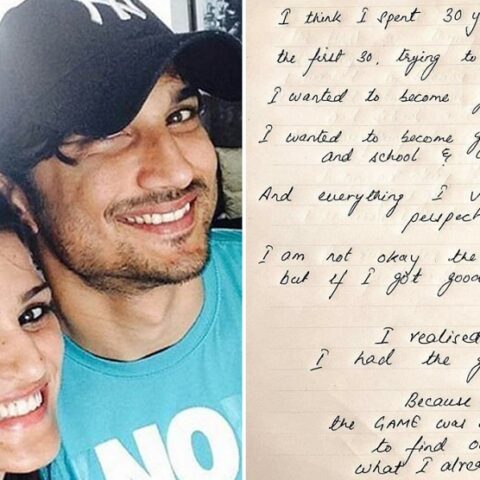 NY
NO
I think I spent 30 y
the first 30, trying to
I wanted to become
I wanted to become g
and school &
And everything I
perspect
I am not okay the
but if I got good
I realised
I had the g
Because
the GAME was
to find
what I alrea